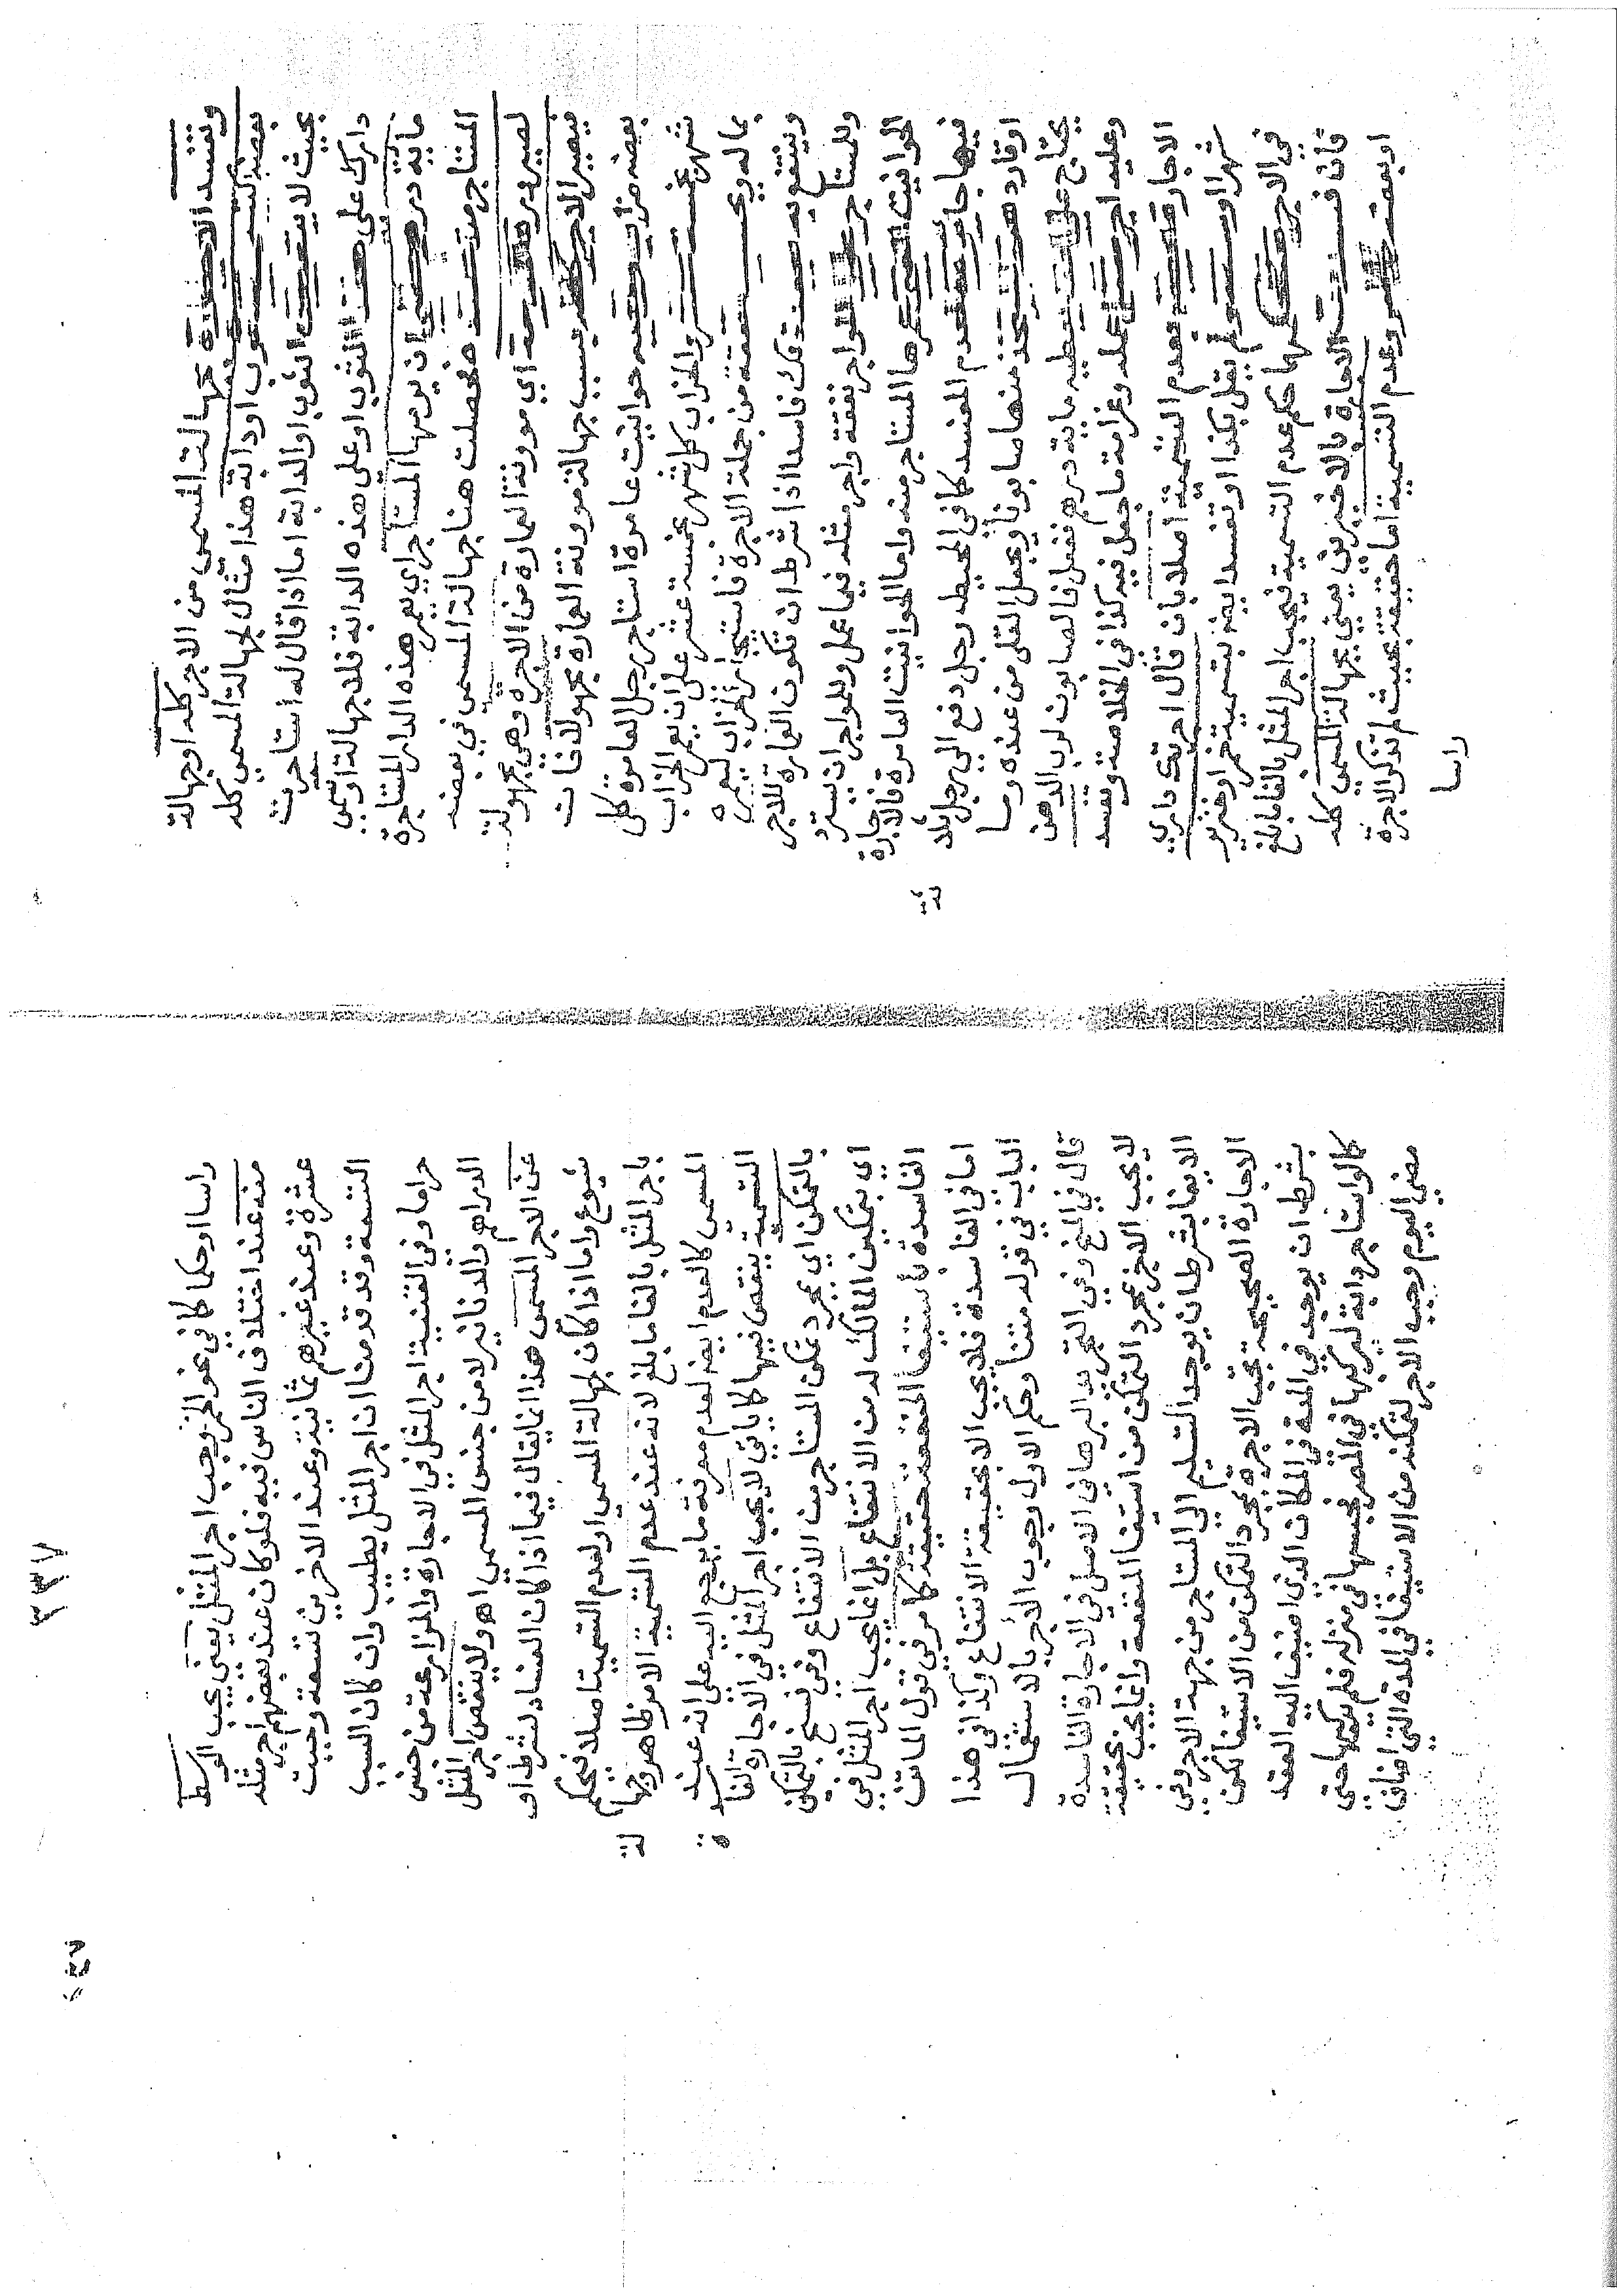 وتفسد الاجارة بجهالة المسمى من الاجر كله او جهالة
بعضه كتسمية ثوب او دابة هذا مثال لجهالة المسمى كله
بحيث لا يتعين الثوب او الدابة اما اذا قال له استاجرت
دارك على هذا الثوب او على هذه الدابة فلا جهالة او يسمى
ماية درهم على ان يرمها المستاجر اي يعمر هذه الدار المستاجرة
المستاجر من فحصلت هنا جهالة المسمى في بعضه
لصيرورة المرمة اي موونة العمارة من الاجرة وهي مجهولة
فيصير الاجر بسبب جهالة موونة العمارة مجهولا خان
بعضه خراب وفيه حوانيت عامرة استاجر رجل العامرة كل
شهر بخمسة عشر والخراب كل شهر بخمسة عشر على ان يعمر الخراب
بماله ويحسب نفقته من جملة الاجرة فاستيجار الخراب ليعمره
وينتفع به بعد ذلك فاسد اذا شرط ان تكون العمارة للاجر
وللمستاجر على المواجر نفقته واجر مثله فيما عمل وللمواجر ان يسترد
الحوانيت التي عمرها المستاجر منه واما الحوانيت العامرة فالاجارة
فيها جايزة لعدم المفسد كما في المحيط رجل دفع الى رجل
او قارة دهن ليتخذ منها صابونا ويجعل القلى من عنده وما
يحتاج على ان يعطيه ماية درهم ففعل فالصابون لرب الدهن
وعليه اجر مثل عمله وغرامة ما جعل فيه كذا في الخلاصة وتفسد
الاجارة بعدم التسمية اصلا بان قال اجرتك داري
شهرا او سنة ولم يقل بكذا او تفسد ايضا بتسمية خمر او خنزير
في الاجرة حكمها حكم عدم التسمية فيجب اجر المثل بالغا ما بلغ
فان فسدت الاجارة بالاخيرين يعني بجهالة المسمى كله
او بعضه وعدم التسمية اما حقيقة بحيث لم تذكر الاجرة
راسا
٣٣٧
راسا او حكما كما في نحو الخمر وجب اجر المثل يعني يجب الوسط
منه عند اختلاف الناس فيه فلو كان عند بعضهم اجر مثله
عشرة وعند غيرهم ثمانية وعند الاخرين تسعة وجبت
التسعة وقد قدمنا ان اجر المثل يطيب وان كان السبب
حراما وفي القنية اجر المثل في الاجارة والمزارعة من جنس
الدراهم والدنانير لا من جنس المسمى اهـ ولا ينقص اجر المثل
عن الاجر المسمى هذا انما يقال فيما اذا كان الفساد لشرط او
شيوع واما اذا كان لجهالة المسمى او لعدم التسمية اصلا فيحكم
باجر المثل بالغا ما بلغ لانه عند عدم التسمية الامر ظاهر وعند جهالة
المسمى كالعدم ايضا لعدم معرفة ما يرجع اليه على انه عند
التسمية ينقص فيها كما ياتي لا يجب اجر المثل في الاجارة الفاسدة
بالتمكن اي بمجرد تمكن المستاجر من الانتفاع وفي نسخ بالتمكين
اي بتمكين المالك له من الانتفاع بل انما يجب اجر المثل في
الفاسدة باستيفا المنفعة حقيقة كما مر في قول الماتن
اما في الفاسدة فلا يجب الا بحقيقة الانتفاع وكذا في هذا
الباب في قوله متنا وحكم الاول وجوب الاجر بالاستعمال
قال في المنح وفي التجريد البرهاني الاصل في الاجارة الفاسدة
لا يجب الاجر بمجرد التمكن من استيفا المنفعة وانما يجب بحقيقة
الايفا بشرط ان يوجد التسليم الى المستاجر من جهة الاجر وفي
الاجارة الصحيحة تجب الاجرة بمجرد التمكن من الاستيفا لكن
بشرط ان يوجد في المدة في المكان الذي اضيف اليه العقد
كما لو استاجر دابة ليركبها في المصر فحبسها في منزله فلم يركبها حتى
مضى اليوم وجب الاجر لتمكنه من الاستيفا في المدة التي اضافي